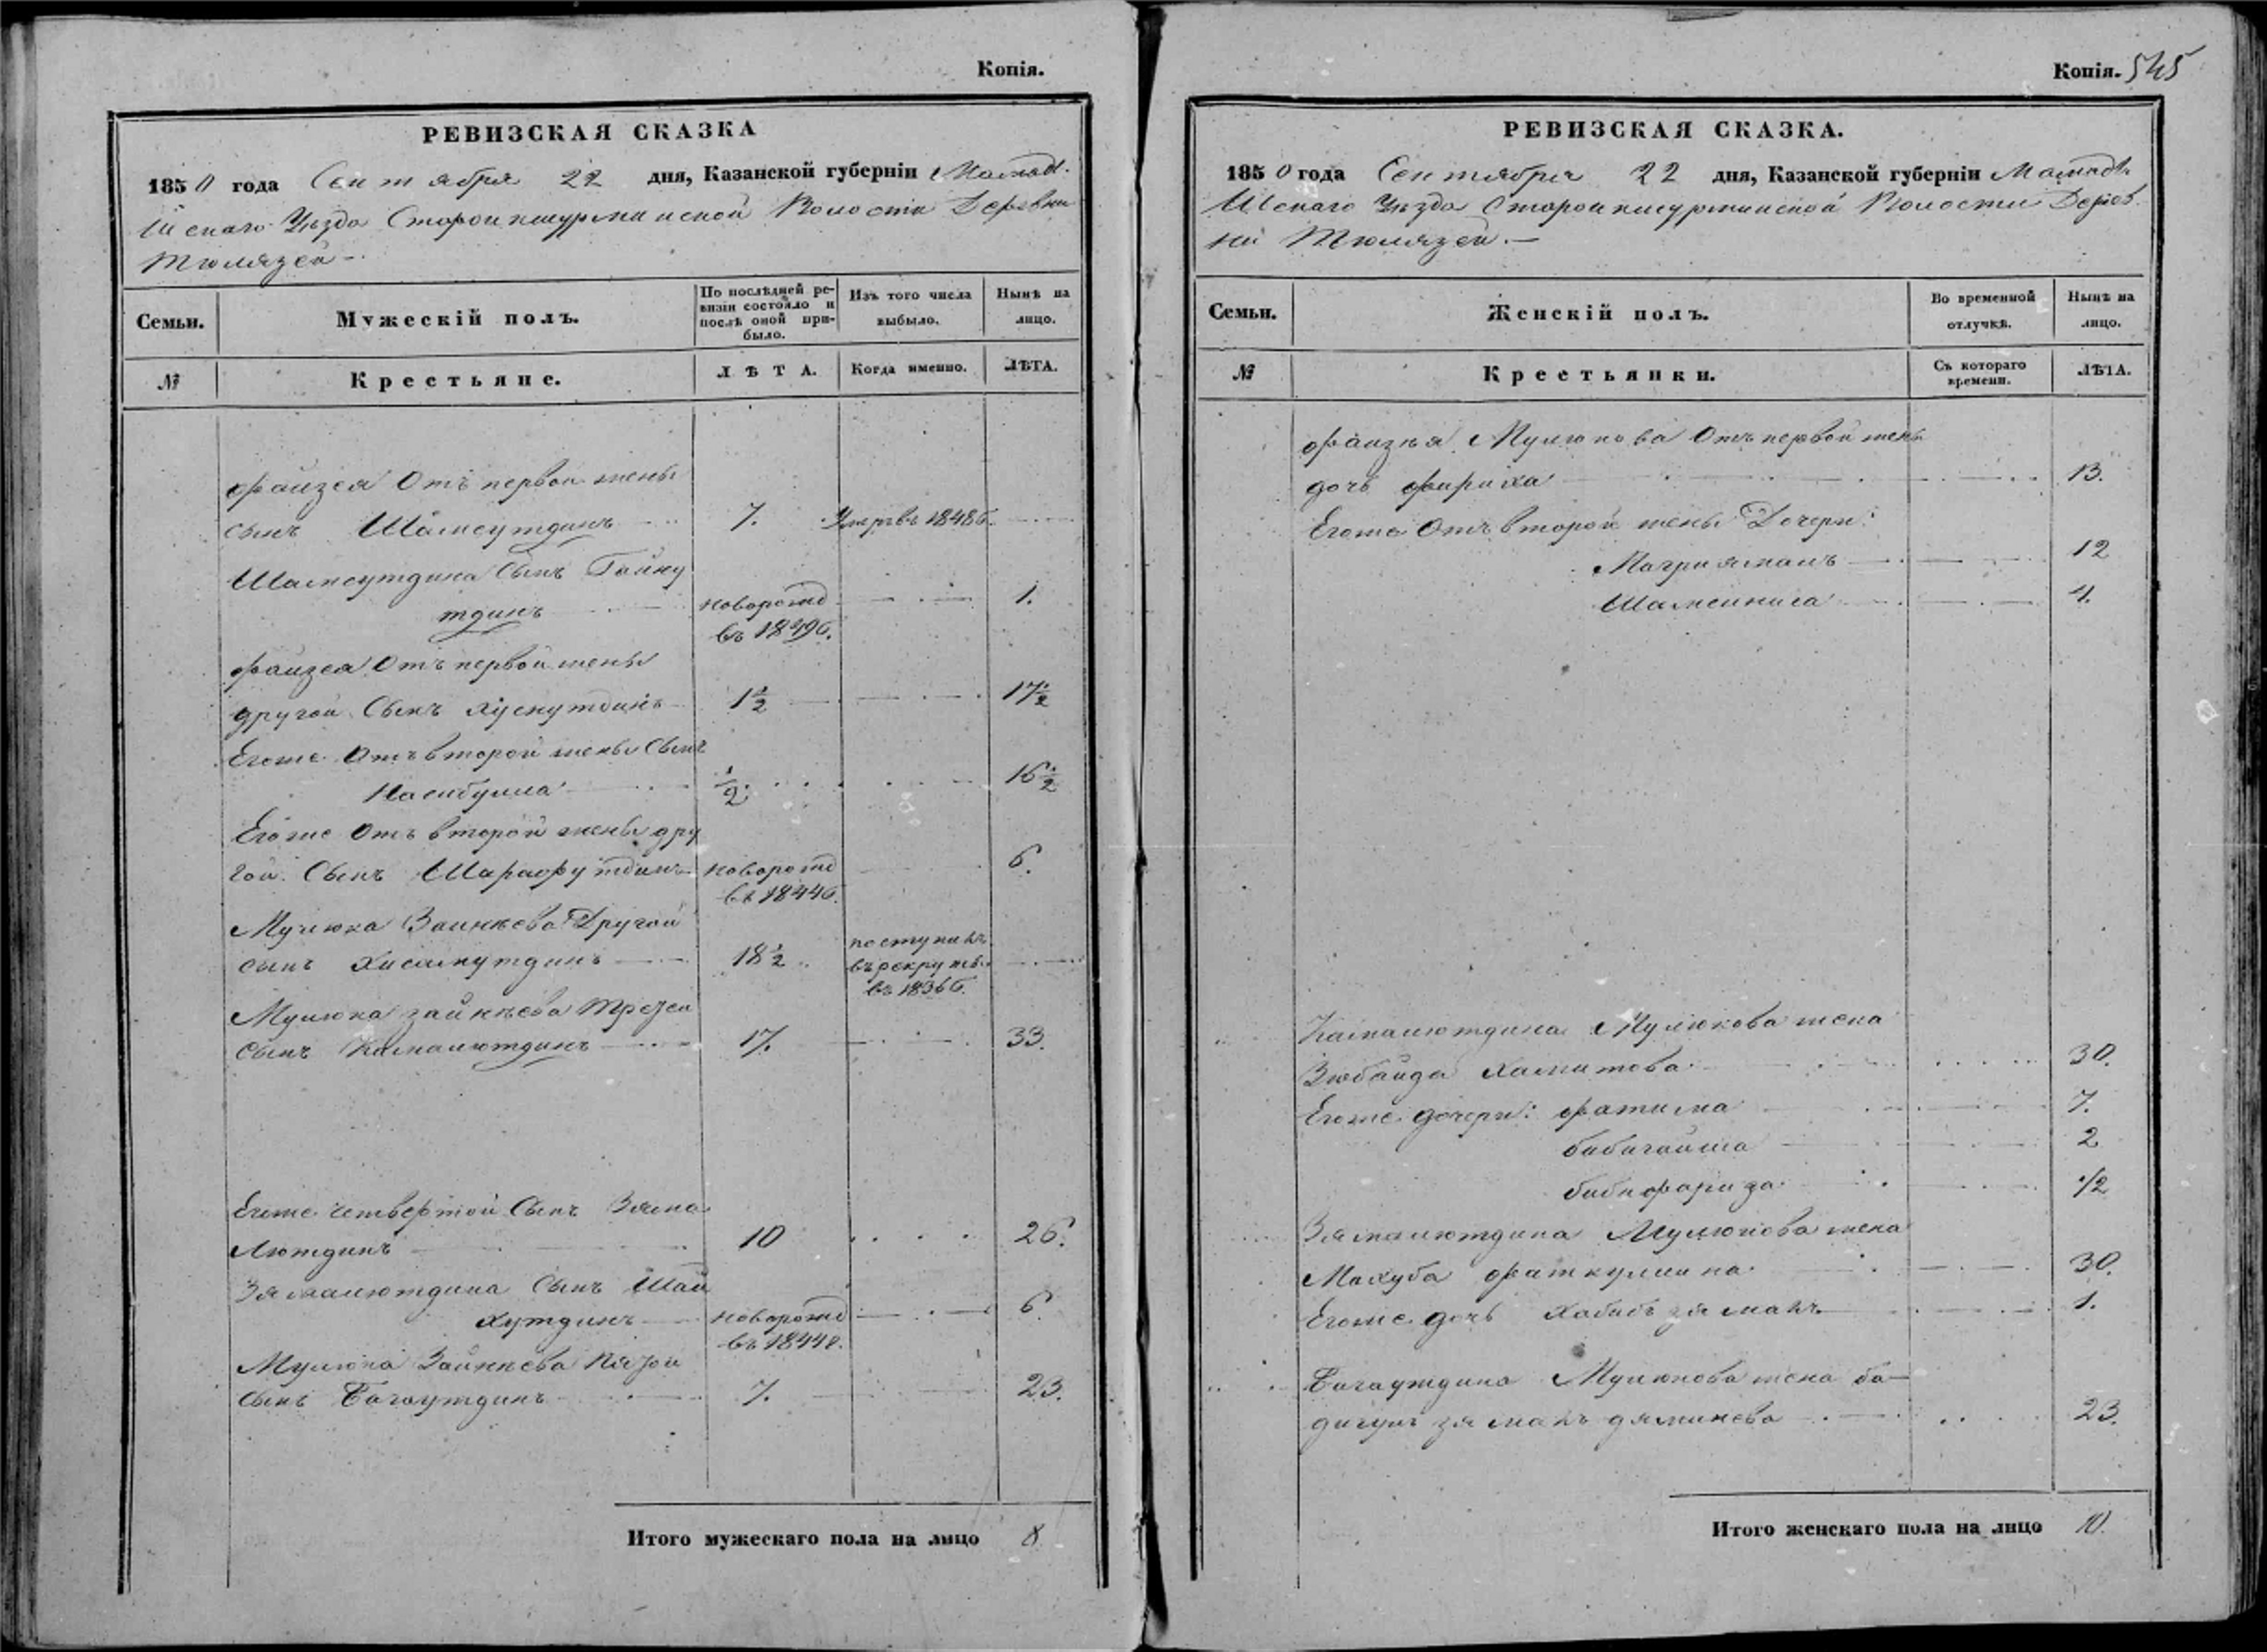 Копія.
РЕВИЗСКАЯ СКАЗКА
1850 года Сентября 22 дня, Казанской губерніи Мамады
Шскаго Уѣзда Староикшурминской Волости Деревни
Тюлязей
Семьи.
Мужескій полъ.
По послѣдней ре-
визіи состояло и
послѣ оной при-
было.
Изъ того числа
выбыло.
Нынѣ на
лицо.
№
Крестьяне.
ЛѢТА.
Когда именно.
ЛѢТА.
Файзея Отъ первой жены
сынъ Шамсутдинъ 7. Умръ въ 1848 г.
Шамсутдина Сынъ Гайну
тдинъ новорожд 1.
въ 1849 г.
Файзея Отъ первой жены
другой Сынъ Хуснутдинъ 1½ 17½
Егоже Отъ второй жены Сынъ
Насибулла ½ 16½
Егоже Отъ второй жены дру
гой Сынъ Шарафутдинъ новорожд 6.
въ 1844 г.
Мулюка Заинѣева Другой
сынъ Хисамутдинъ 18½ поступилъ
въ рекруты
въ 1836 г.
Мулюка Зайнѣева Третей
сынъ Камалютдинъ 17. 33.
Егоже четвертой Сынъ Зяма
лютдинъ 10 26.
Зямалютдина Сынъ Шай
хутдинъ новорожд 6
въ 1844 г.
Мулюка Зайнѣева Пятой
сынъ Багаутдинъ 7. 23.
Итого мужескаго пола на лицо 8
Копія. 545
РЕВИЗСКАЯ СКАЗКА.
1850 года Сентября 22 дня, Казанской губерніи Мамады
Шскаго Уѣзда Староикшурминской Волости Дерев
ни Тюлязей.
Семьи.
Женскій полъ.
Во временной
отлучкѣ.
Нынѣ на
лицо.
№
Крестьянки.
Съ котораго
времени.
ЛѢТА.
Файзея Мулюкова Отъ первой жены
дочь Фариха 13.
Егоже Отъ второй жены Дочери:
Магриямалъ 12
Шамсиниса 4.
Камалютдина Мулюкова жена
Зюбайда Хамитова 30.
Егоже дочери: Фатима 7.
бибигайша 2
бибифариза ½
Зямалютдина Мулюкова жена
Махуба Фаткуллина 30.
Егоже дочь Хабибъзяналъ 1.
Багаутдина Мулюкова жена ба-
дигулъ зямалъ дяминева 23.
Итого женскаго пола на лицо 10.